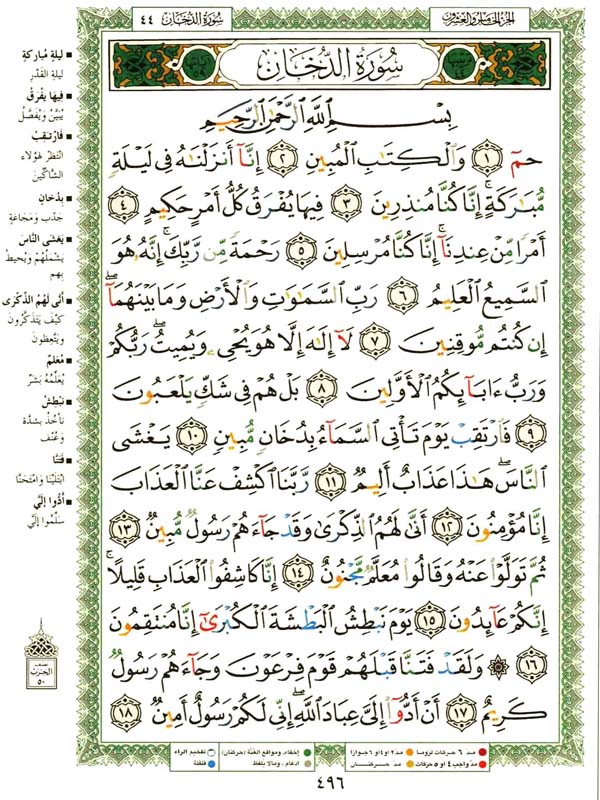 سُورَةُ الدُّخَانِ ٤٤
الجُزْءُ الخَامِسُ وَالعِشْرُونَ
سُورَةُ الدُّخَانِ
بِسْمِ اللَّهِ الرَّحْمَٰنِ الرَّحِيمِ
حمٓ ١ وَالْكِتَابِ الْمُبِينِ ٢ إِنَّا أَنزَلْنَاهُ فِي لَيْلَةٍ
مُّبَارَكَةٍ ۚ إِنَّا كُنَّا مُنذِرِينَ ٣ فِيهَا يُفْرَقُ كُلُّ أَمْرٍ حَكِيمٍ ٤
أَمْرًا مِّنْ عِندِنَا ۚ إِنَّا كُنَّا مُرْسِلِينَ ٥ رَحْمَةً مِّن رَّبِّكَ ۚ إِنَّهُ هُوَ
السَّمِيعُ الْعَلِيمُ ٦ رَبِّ السَّمَاوَاتِ وَالْأَرْضِ وَمَا بَيْنَهُمَا ۖ
إِن كُنتُم مُّوقِنِينَ ٧ لَا إِلَٰهَ إِلَّا هُوَ يُحْيِي وَيُمِيتُ ۖ رَبُّكُمْ
وَرَبُّ ءَابَائِكُمُ الْأَوَّلِينَ ٨ بَلْ هُمْ فِي شَكٍّ يَلْعَبُونَ
٩ فَارْتَقِبْ يَوْمَ تَأْتِي السَّمَاءُ بِدُخَانٍ مُّبِينٍ ١٠ يَغْشَى
النَّاسَ ۖ هَٰذَا عَذَابٌ أَلِيمٌ ١١ رَّبَّنَا اكْشِفْ عَنَّا الْعَذَابَ
إِنَّا مُؤْمِنُونَ ١٢ أَنَّىٰ لَهُمُ الذِّكْرَىٰ وَقَدْ جَاءَهُمْ رَسُولٌ مُّبِينٌ ١٣
ثُمَّ تَوَلَّوْا عَنْهُ وَقَالُوا مُعَلَّمٌ مَّجْنُونٌ ١٤ إِنَّا كَاشِفُوا الْعَذَابِ قَلِيلًا ۚ
إِنَّكُمْ عَائِدُونَ ١٥ يَوْمَ نَبْطِشُ الْبَطْشَةَ الْكُبْرَىٰ إِنَّا مُنتَقِمُونَ
١٦ ۞ وَلَقَدْ فَتَنَّا قَبْلَهُمْ قَوْمَ فِرْعَوْنَ وَجَاءَهُمْ رَسُولٌ
كَرِيمٌ ١٧ أَنْ أَدُّوا إِلَيَّ عِبَادَ اللَّهِ ۖ إِنِّي لَكُمْ رَسُولٌ أَمِينٌ ١٨
لَيْلَةٍ مُبَارَكَةٍ
لَيْلَةِ القَدْرِ
فِيهَا يُفْرَقُ
يُبَيَّنُ وَيُفَصَّلُ
فَارْتَقِبْ
انْتَظِرْ هَؤُلاءِ
الشَّاكِّينَ
بِدُخَانٍ
جَدْبٍ وَمَجَاعَةٍ
يَغْشَى النَّاسَ
يَشْمَلُهُمْ وَيُحِيطُ
بِهِم
أَنَّى لَهُمُ الذِّكْرَى
كَيْفَ يَتَذَكَّرُونَ
وَيَتَّعِظُونَ
مُعَلَّمٌ
يُعَلِّمُهُ بَشَرٌ
نَبْطِشُ
نَأْخُذُ بِشِدَّةٍ
وَعُنْفٍ
فَتَنَّا
ابْتَلَيْنَا وَامْتَحَنَّا
أَدُّوا إِلَيَّ
سَلِّمُوا إِلَيَّ
نصف
الحزب
٥٠
مدّ ٦ حركات لزوماً
مدّ ٢ أو ٤ أو ٦ جوازاً
إخفاء، ومواقع الغُنَّة (حركتان)
تفخيم الراء
مدّ واجب ٤ أو ٥ حركات
مدّ حركتان
ادغام، ومالا يلفظ
قلقلة
٤٩٦